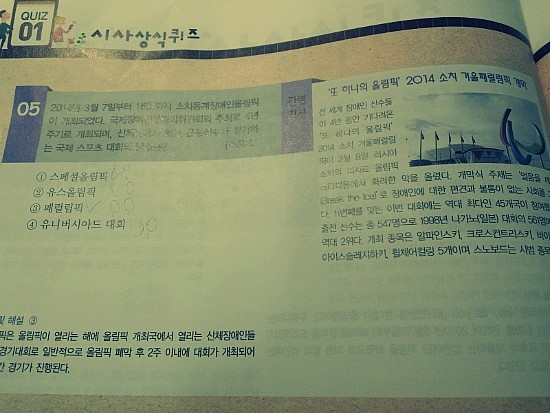 QUIZ
01
시사상식퀴즈
05
2014년 3월 7일부터 16일까지 소치동계장애인올림픽
이 개최되었다. 국제장애인올림픽위원회의 주최로 4년
주기로 개최되며, 신체
는 국제 스포츠 대회의
① 스페셜올림픽
② 유스올림픽
③ 페럴림픽
④ 유니버시아드 대회
및 해설 ③
픽은 올림픽이 열리는 해에 올림픽 개최국에서 열리는 신체장애인들
경기대회로 일반적으로 올림픽 폐막 후 2주 이내에 대회가 개최되어
간 경기가 진행된다.
관련
기사
'또 하나의 올림픽' 2014 소치 겨울패럴림픽 개막
전 세계 장애인 선수들
이 4년 동안 기다려온
'또 하나의 올림픽'
2014 소치 겨울패럴림
픽이 3월 8일 러시아
소치의 피시트 올림픽
스타디움에서 화려한 막을 올렸다. 개막식 주제는 '얼음을 깨
(Break the Ice)'로 장애인에 대한 편견과 불통이 없는 사회를
다. 11번째를 맞는 이번 대회에는 역대 최다인 45개국이 참여했
출전 선수는 총 547명으로 1998년 나가노(일본) 대회의 561명에
역대 2위다. 개최 종목은 알파인스키, 크로스컨트리스키, 바이
아이스슬레지하키, 휠체어컬링 5개이며, 스노보드는 시범 종목